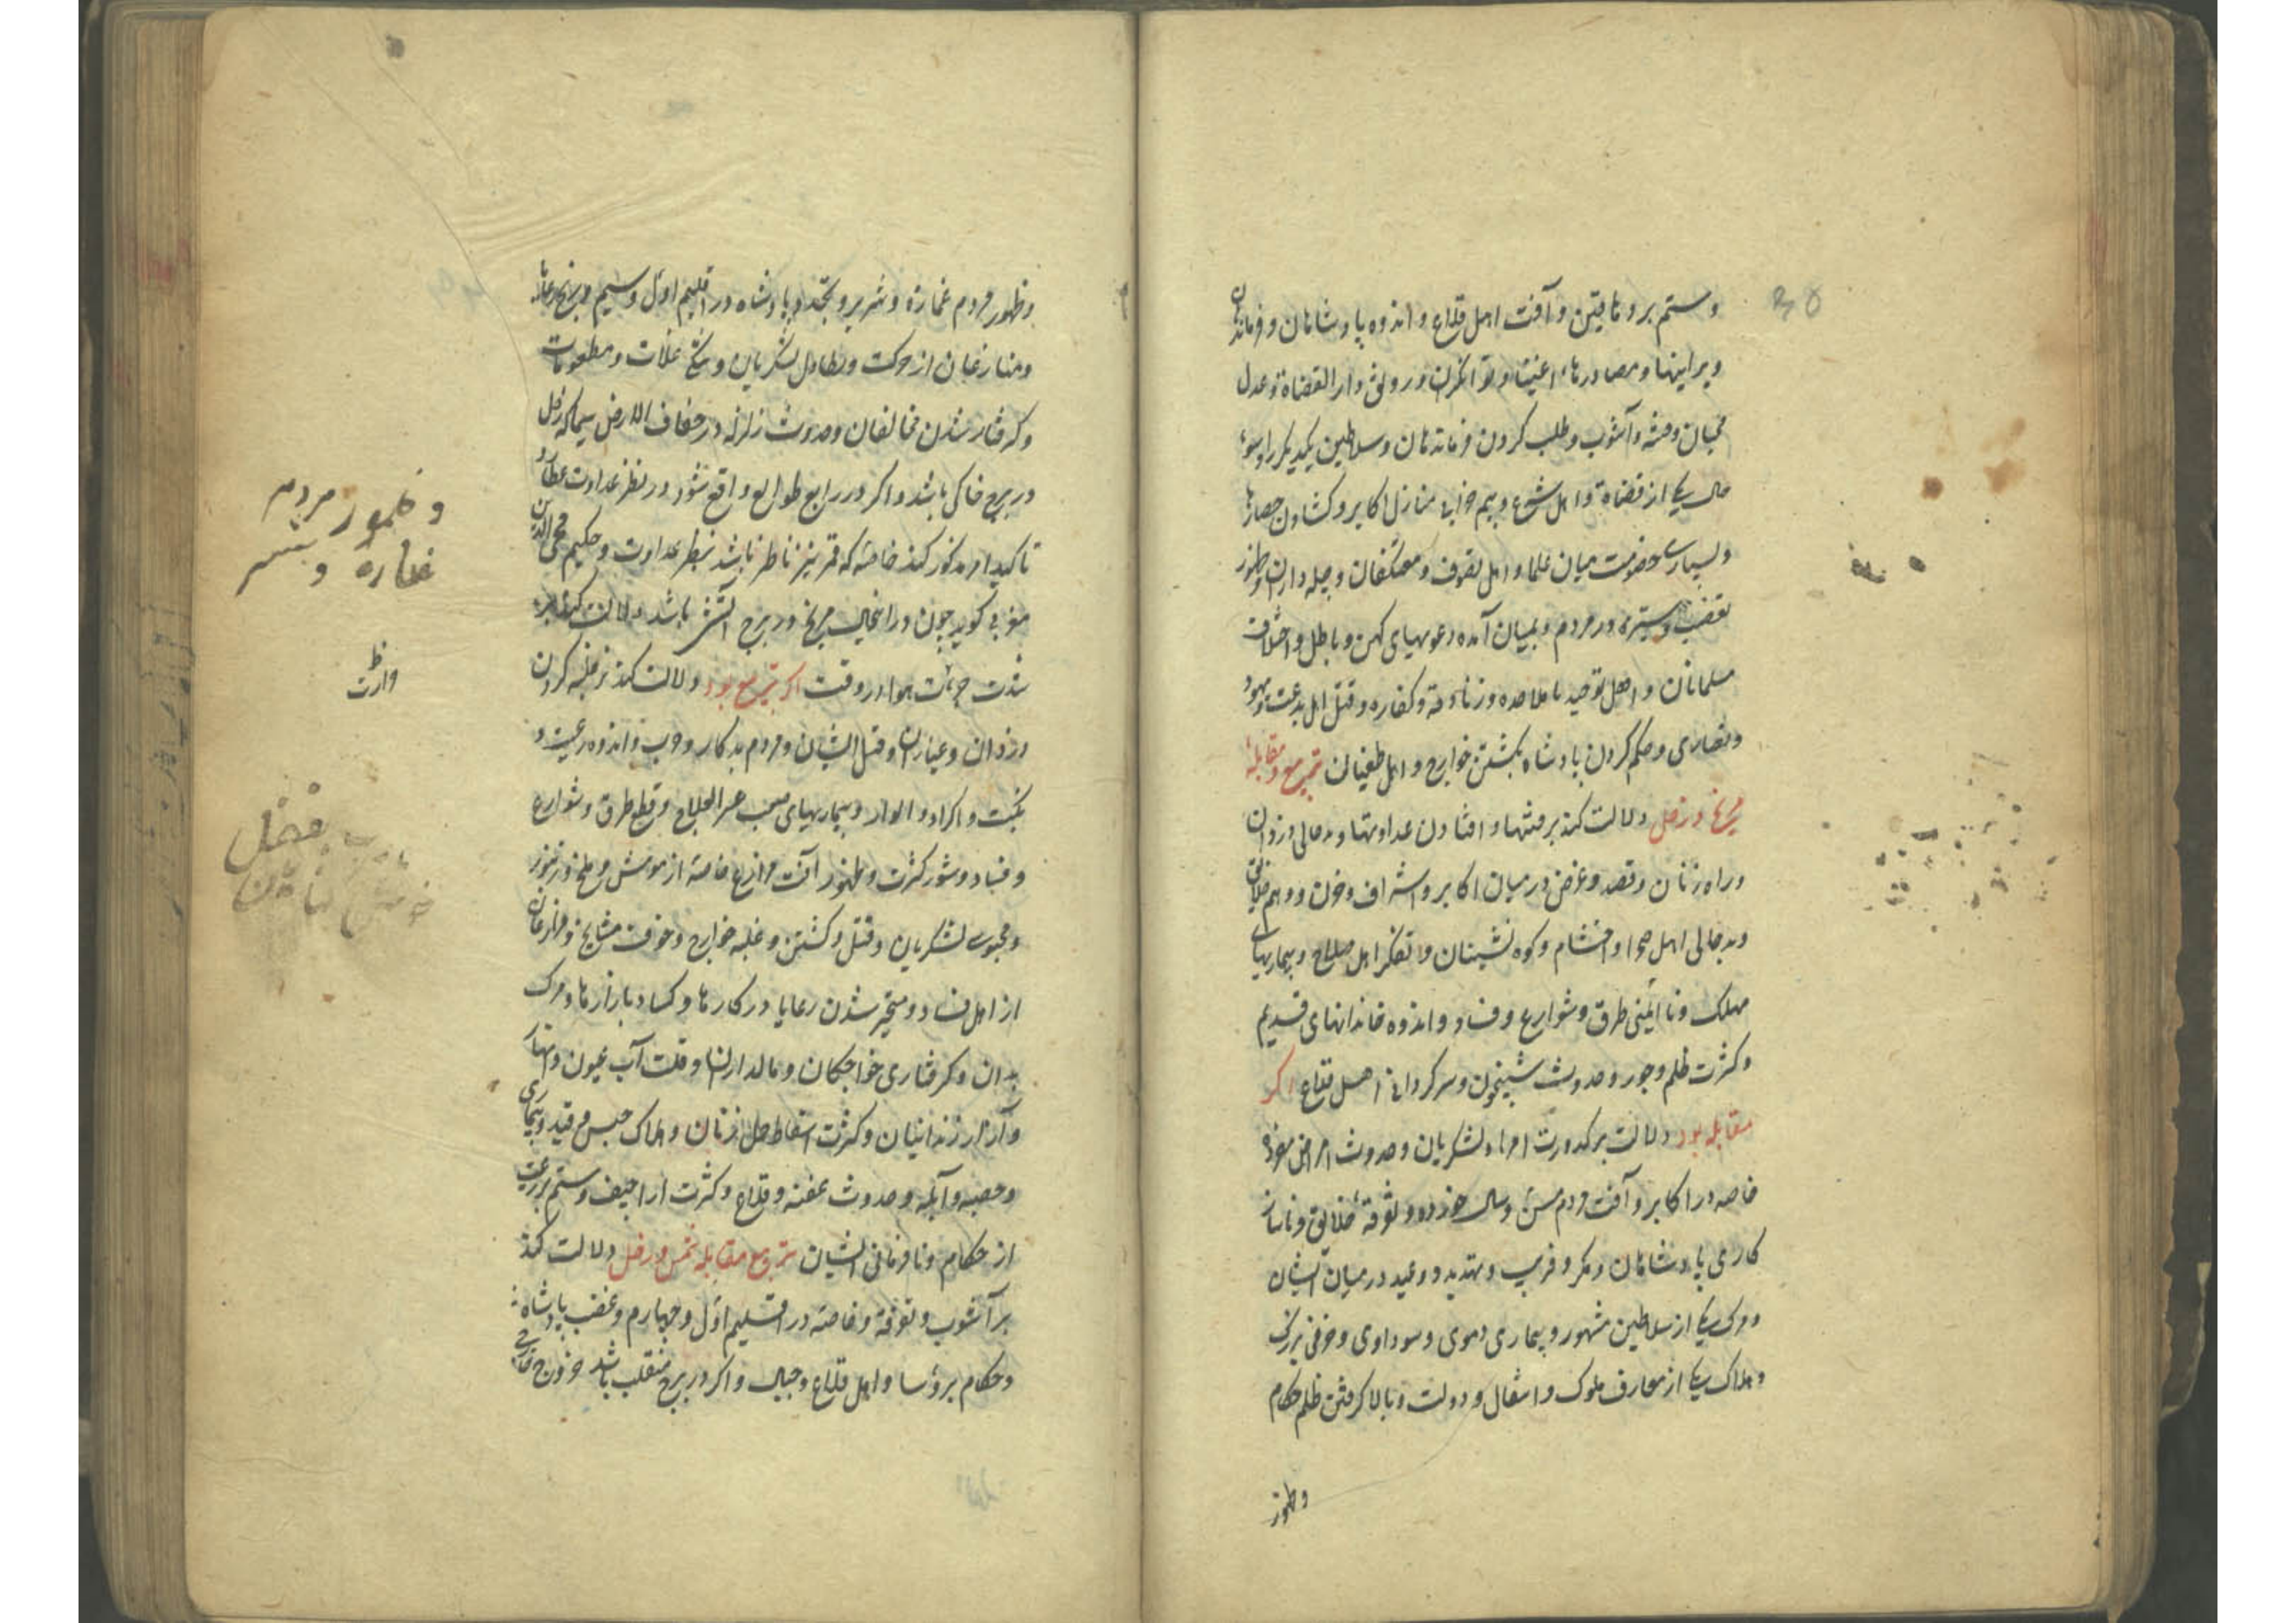 وستم بر دهاقین و آفت اهل قلاع و اندوه پادشاهان و فرماندهان
و مصادرهاء اغنیا و توانگران و رونق دار القضاة و عدل
و فتنه و آشوب و طلب کردن فرماندهان و سلاطین یکدیکر را و سوء
حال یکی از قضاة و اهل شرع و بیم خرابی منازل اکابر و کشادن حصارها
و بسیاری خصومت میان علما و اهل تصوف و معتکفان و چله داران و ظهور
تعصب و ستیزه در مردم و بمیان آمده دعویهای کهن و باطل و اختلاف
مسلمانان و اهل توحید با ملاحده و زنادقه و کفاره و قتل اهل بدعت و یهود
و نصاری و حکم کردن پادشاه بکشتن خوارج و اهل طغیان تربیع و مقابلهٔ
مریخ و زحل دلالت کند بر فتنها و افتادن عداوتها و بدحالی دزدان
و راه زنان و قصد و غرض در میان اکابر و اشراف و خون و وهم خلایق
و بدحالی اهل صحرا و احشام و کوه نشینان و تفکر اهل صلاح و بیماریهای
مهلک و ناایمنی طرق و شوارع و فساد و اندوه خاندانهای قدیم
و کثرت ظلم و جور و حدوث شبیخون و سرکردانی اهل قلاع اکر
مقابله بود دلالت بر کدورت امراء و لشکریان و حدوث امراض
خاصه در اکابر و آفت مردم مسن و سال خورده و تفرقهٔ خلایق و ناساز
کاری پادشاهان و مکر و فریب و تهدید و وعید در میان ایشان
و مرک یکی از سلاطین مشهور و بیماری دموی و سوداوی و خوفی بزرک
و هلاک یکی از معارف ملوک و انتقال دولت و بالا کرفتن ظلم حکام
و ظهور
و ظهور مردم غمازه و شریر و تجدد پادشاه در اقلیم اول و سیم و رنج رعایا
و منازعان از حرکت و تطاول لشکریان و تنکی غلات و مطعومات
و کرفتار شدن مخالفان و حدوث زلزله در اطراف الارض سیما که زحل
در برج خاکی باشد و اکر در رابع طوالع واقع شود و نظر عداوت عطارد
تاکید امر مذکور کند خاصه که قمر نیز ناظر باشد بنظر عداوت و حکیم محی الدین
مغربی کوید چون در آنحال مریخ در برج آتشی باشد دلالت کند بر
شدت حرارت هوا در وقت اکر تربیع بود دلالت کند بر غلبه کردن
دزدان و عیاران و قتل ایشان و مردم بدکار و حرب و اندوه رعیت و
نکبت و اکراد و الوار و بیماریهای صعب عسر العلاج و قطع طرق و شوارع
و فساد و شور کثرت و ظهور آفت مزارع خاصه از موش و ملخ و زنبور
لشکریان و قتل و کشتن و غلبه خوارج و خوف مشایخ و مزارعان
از اهل فساد و متحیر شدن رعایا در کارها و کساد بازارها و مرک
بدان و کرفتاری خواجکان و مالداران و قلت آب عیون و انهار
و آزار زندانیان و کثرت اسقاط حمل زنان و هلاک حبس و قید و بیماری
و حصبه و آبله و حدوث عفنه و قلاع و کثرت اراجیف و ستم بر رعیت
از حکام و نافرمانی ایشان تربیع مقابله شمس و زحل دلالت کند
بر آشوب و تفرقه و خاصه در اقلیم اول و چهارم و غضب پادشاه
و حکام بر رؤسا و اهل قلاع و جبال و اکر در برج منقلب باشد خروج خارجی
و ظهور مردم
غمازه و شریر